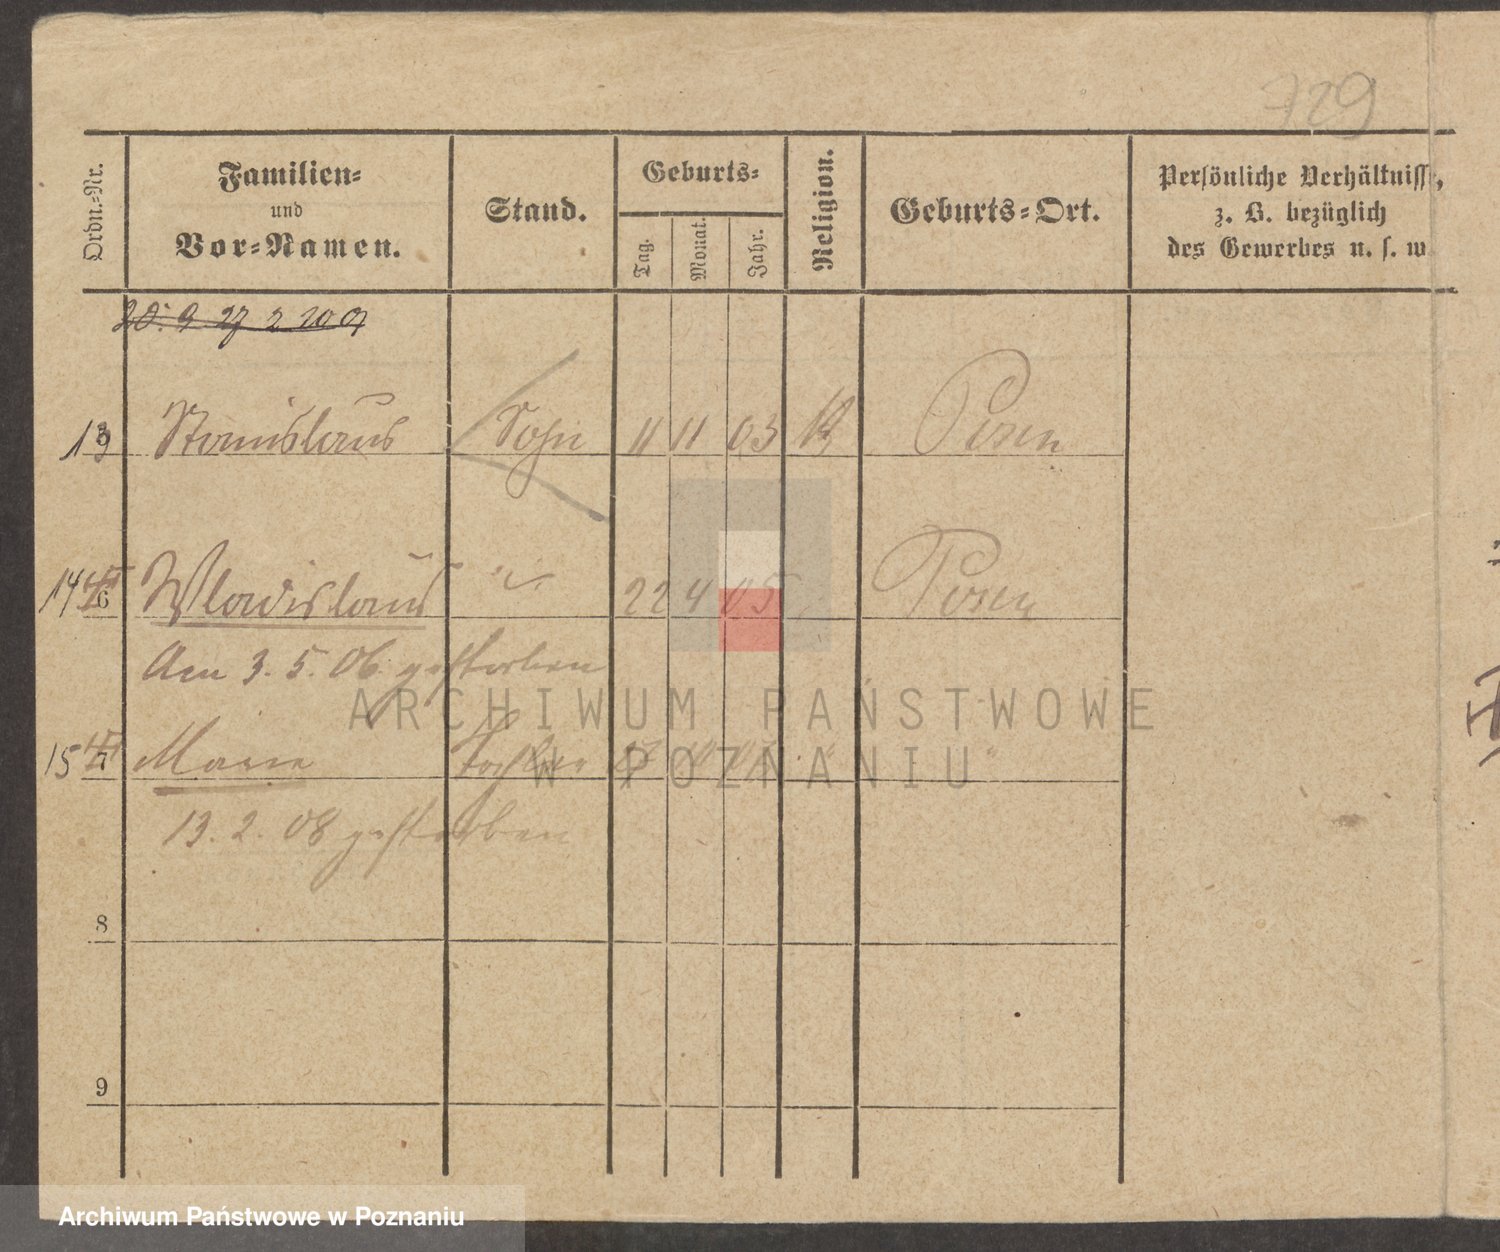 729
Ordn.-Nr.
Familien-
und
Vor-Namen.
Stand.
Geburts-
Tag.
Monat.
Jahr.
Religion.
Geburts-Ort.
Persönliche Verhältnisse,
z. B. bezüglich
des Gewerbes u. s. w.
13 Stanislaus Sohn 11 11 03 Posen
14 6 Wladislaus " 22 4 05 Posen
Am 3. 5. 06. gestorben
ARCHIWUM PAŃSTWOWE
15 7 Marie Tochter "
W POZNANIU
13. 2. 08 gestorben
8
9
Archiwum Państwowe w Poznaniu